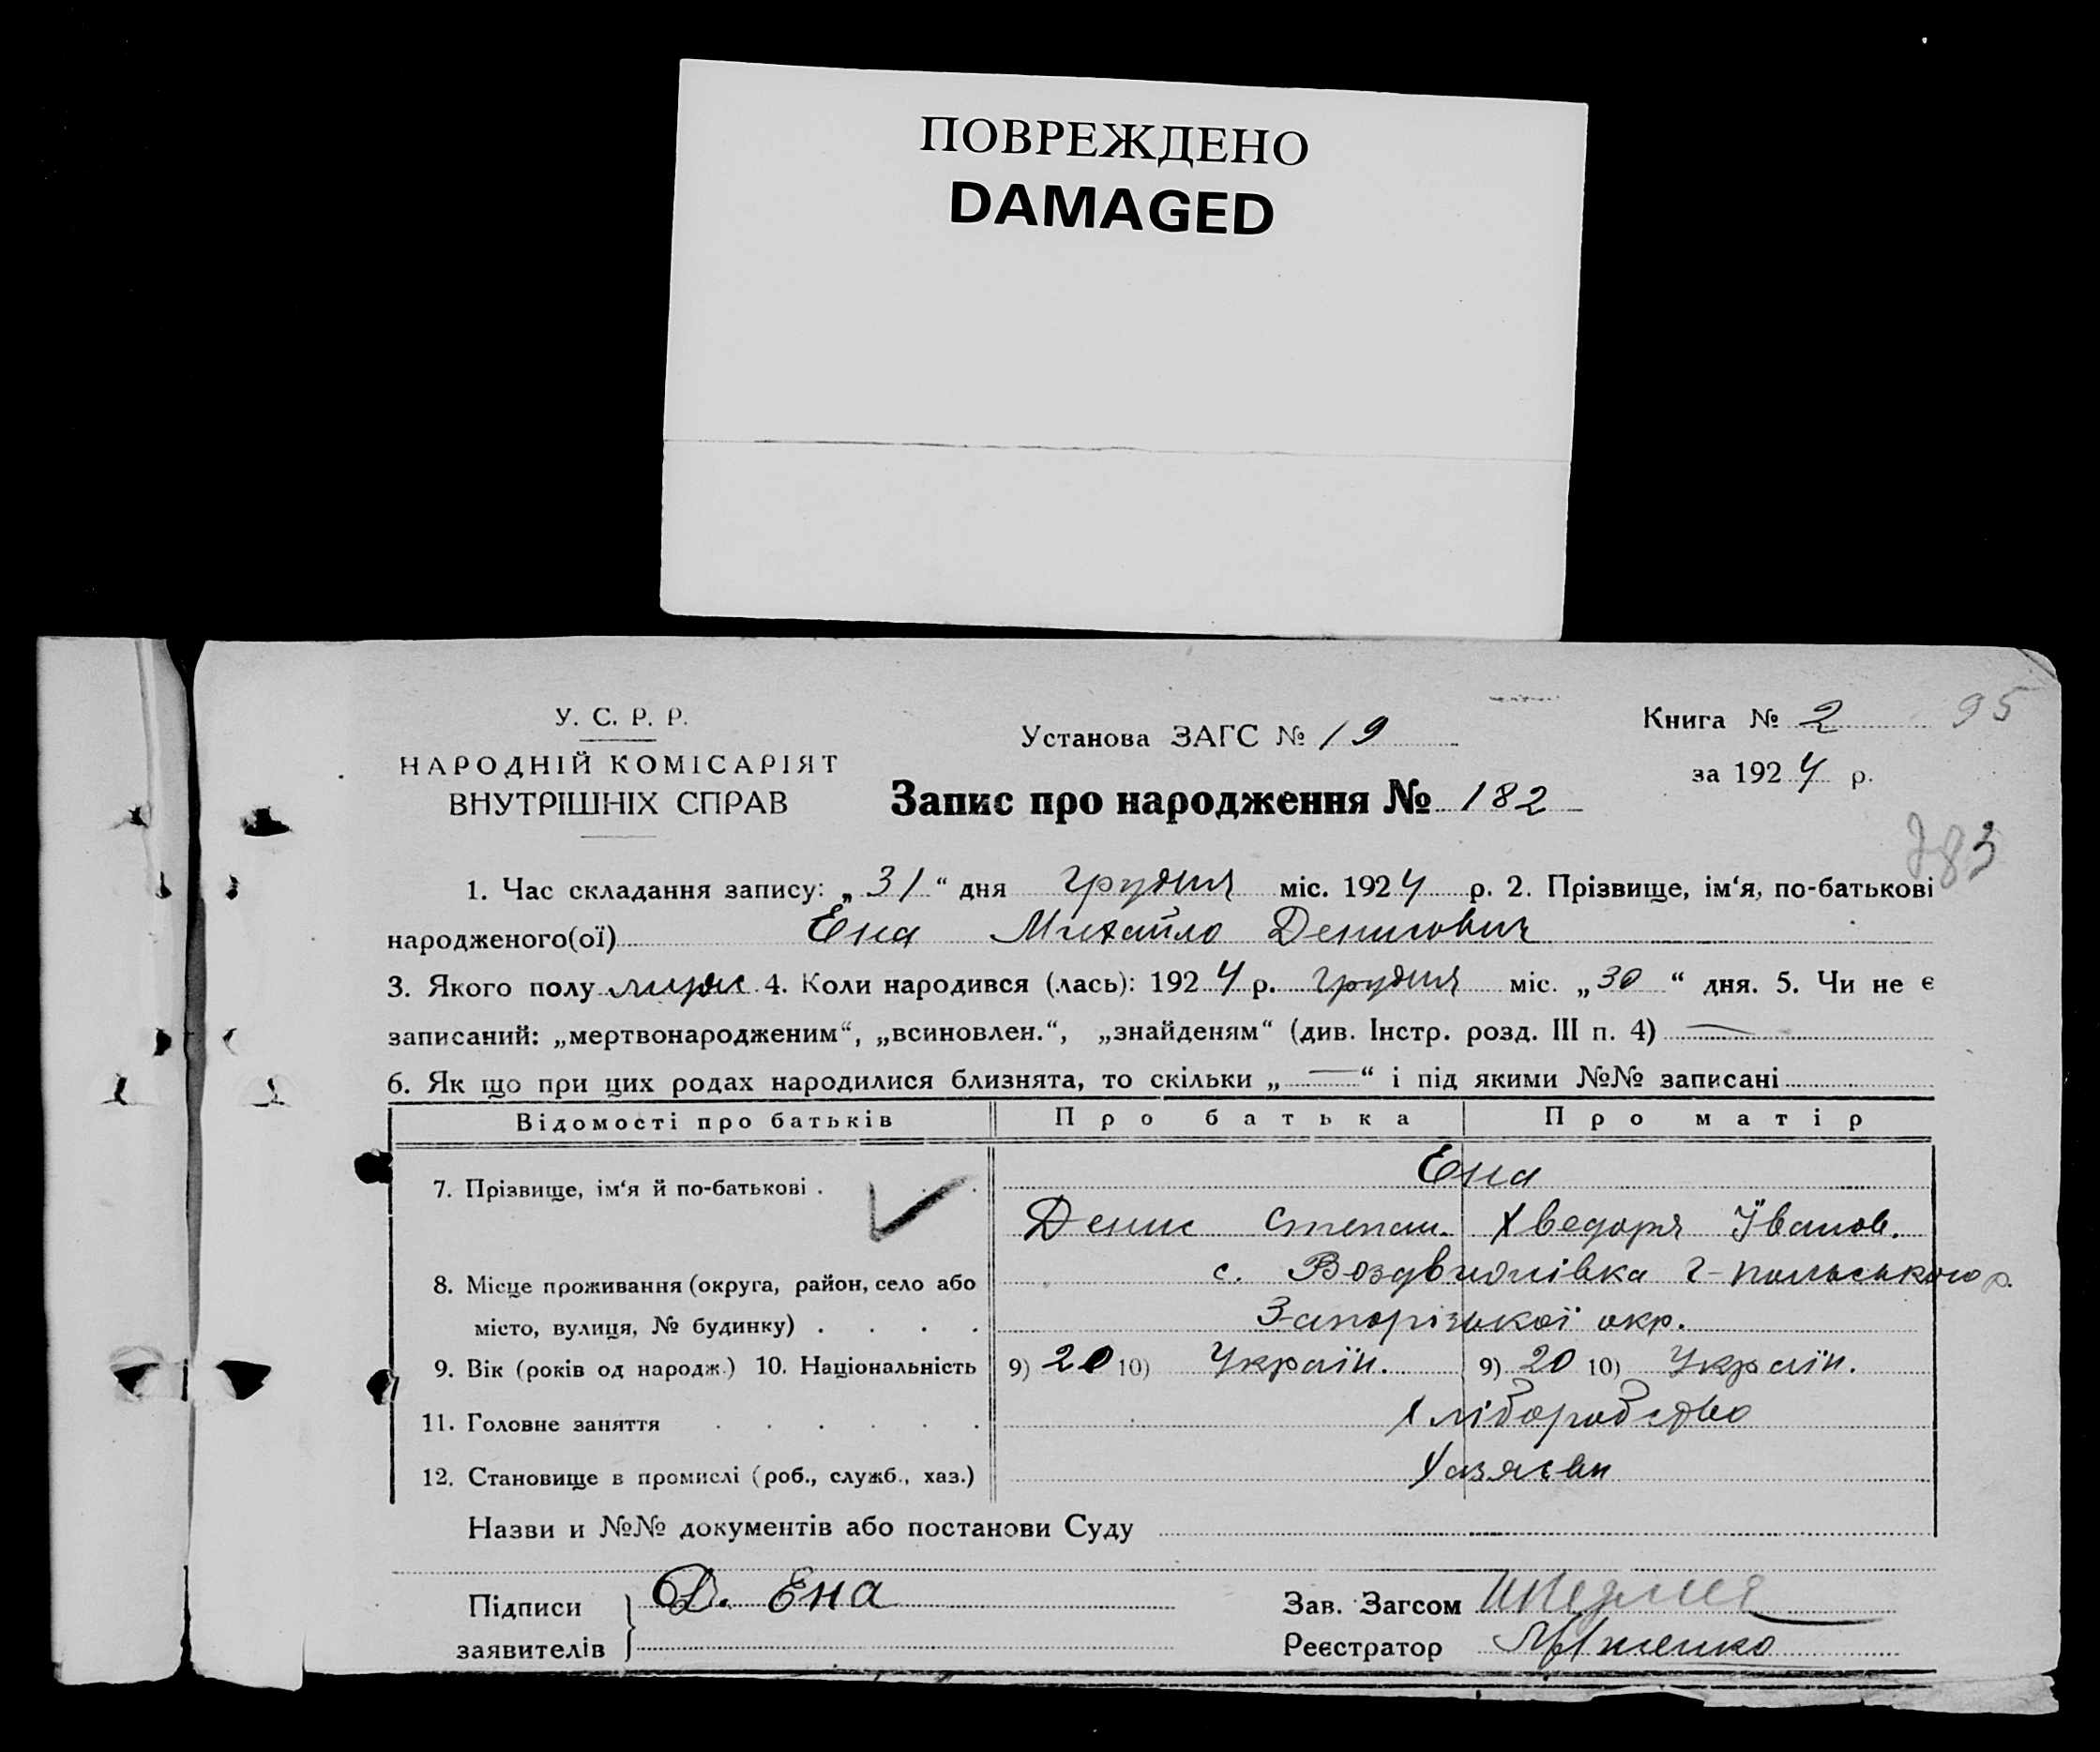 ПОВРЕЖДЕНО
DAMAGED
У. С. Р. Р.
НАРОДНІЙ КОМІСАРІЯТ
ВНУТРІШНІХ СПРАВ
Установа ЗАГС № 19
Запис про народження № 182
Книга № 2 95
за 1924 р.
183
1. Час складання запису: „31“ дня грудня міс. 1924 р. 2. Прізвище, ім‘я, по-батькові
народженого(ої) Ена Михайло Денисович
3. Якого полу муж. 4. Коли народився (лась): 1924 р. грудня міс. „30“ дня. 5. Чи не є
записаний: „мертвонародженим“, „всиновлен.“, „знайденям“ (див. Інстр. розд. III п. 4) —
6. Як що при цих родах народилися близнята, то скільки „—“ і під якими №№ записані
Відомості про батьків Про батька Про матір
7. Прізвище, ім‘я й по-батькові . Ена
Денис Степан. Хведоря Іванов.
8. Місце проживання (округа, район, село або с. Воздвижівка г-польського р.
місто, вулиця, № будинку) . . . . Запорізької окр.
9. Вік (років од народж.) 10. Національність 9) 20 10) Україн. 9) 20 10) Україн.
11. Головне заняття . . . . . . Хліборобство
12. Становище в промислі (роб., служб., хаз.) Хазяєви
Назви и №№ документів або постанови Суду
Підписи Д. Ена Зав. Загсом
заявителів Реєстратор